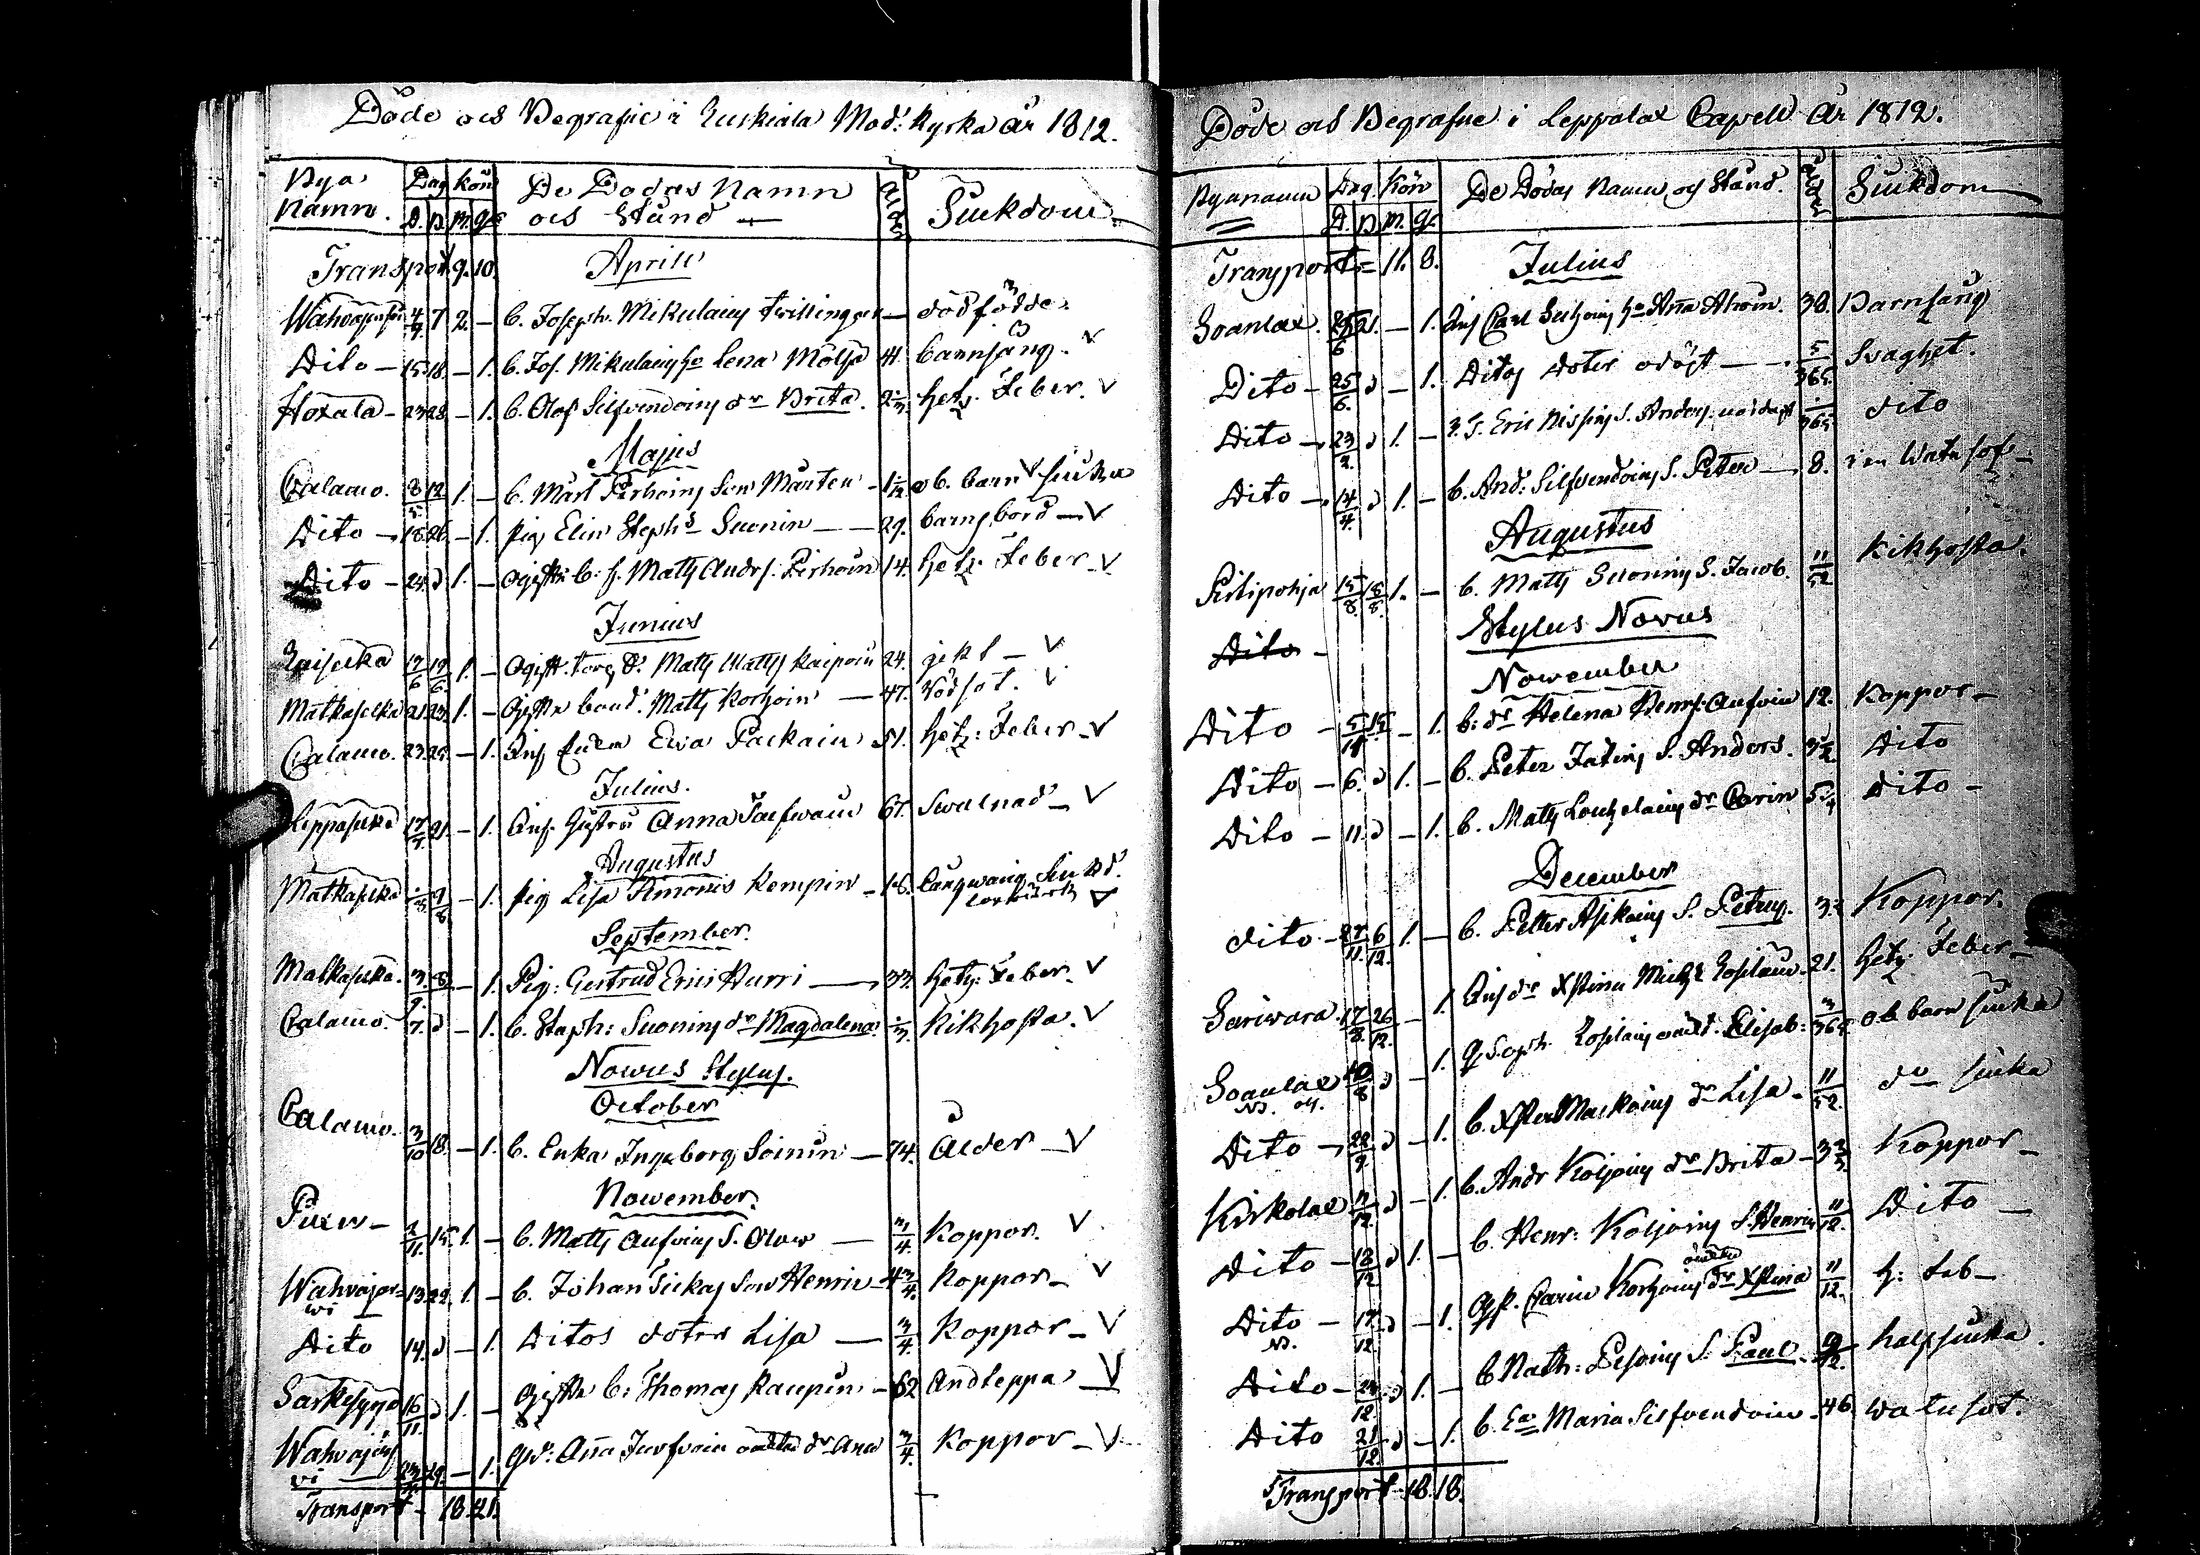 Döde och Begrafne i Ruskiala Mod: Kyrka År 1812.
Bya Namn. Dag Kön De Dödas Namn och Stånd Ålder Siukdom
D. B. M. Q.
Transport 9. 10. Aprill
4/4 7 2. — B. Joseph Mikulainens Twillingar — dödfödde.
Dito — 15. 18. — 1. B. Jos. Mikulains ho Lena Mölsä 41. barnsäng. V
Hoxala — 23. 28. — 1. B. Olof Silfvendoins dr Brita. Hetz. Feber. V
Majus
Calamo. 8/5 12 1. — B. Mårt Pirhoins Son Mårten — 1 1/12 ob. barn siuka V
Dito — 18. 26. — 1. pig Elin Stephsd Suonin — 29. barnsbörd — V
Dito — 24. d 1. — Ogift B. s. Matts Andrs. Pirhoin 14. hetz. Feber — V
Junius
17/6 19/6 1. — Ogift. Matts Matts Kaipain 24. gikt — V
Matkaselkä 21. 23. 1. — Gifte bond. Matts Korhoin — 47. rödsot. V
Calamo. 23. 25. — 1. Inh Enka Ewa Packain 51. Hetz: Feber — V
Julius.
Leppäselkä 17/7 21. — 1. Inh. Hustru Anna Tarfwain 67. Swulnad — V
Augustus
Matkaselkä 9/8 — 1. pig Lisa Simonis Kempin — 16. Långwarig Siukd. V
September.
Matkaselkä. 3/9. 8. — 1. Pig: Gertrud Erics Hurri — 33. hetz: Feber. V
Calamo. 7. d — 1. B. Staph: Suonins dr Magdalena. Kikhosta. V
Novus Stylus.
October
Calamo. 3/10 18. — 1. B. Enka Ingeborg Soinin — 74. Ålder — V
November.
2/11. 15. 1. — B. Matts Aufvins S. Olow — 3/4. Koppor. V
Wahvajärwi 13. 22. 1. — B. Johan Sickas Son Henric — 4 3/4. Koppor — V
Dito 14. d — 1. Ditos doter Lisa — 3/4. Koppor — V
Särkisyrjä 16/11. d 1. — Gifte B: Thomas Kaupin — 62 Andteppa — V
Wahvajärvi 29. — 1. Anna Turfvain oäkta dr Anna 3/4. Koppor — V
Transport — 18. 21.
Döde och Begrafne i Leppälax Capell År 1812.
Byanamn Dag. Kön De Dödas Namn och Stånd. Ålder Siukdom
D. B. M. Q.
Transport = 11. 8. Julius
Soanlax. 21. — 1. Inh Carl ho Anna 38. Barnsäng
Dito — 25/6. d — 1. Ditos doter odöpt — 5/365. Svaghet.
Dito — 23/2. d 1. — Eric S. Anders. nöddöpt 1/365. dito
Dito — 14/4. d 1. — B. And: Silfvendoins S. Peter — 8. Watusot —
Augustus
Pirtipohja 15/8 16/8 1. — B. Matts Suonins S. Jacob. 11/52. Kikhosta.
Stylus Novus
Dito —
November
Dito — 5/11 15. — 1. B: dr Helena Henrs: Aufvin 12. Koppor —
Dito — 6. d 1. — B. Peter S. Anders. 3 1/2. Dito
Dito — 11. d — 1. B. Matts dr Carin 5 1/4 Dito —
December
dito — 27/11. 6/12. 1. — B. Petter Asikains S. Petrus. Koppor.
Sariwara. 17/8. 26/12. — 1. Inh dr Xstina Mich: 21. Hetz Feber —
Soanlax 10/8 d — 1. oäkt. Elisab: 3/365 ob barnsiuka
Dito — 22/9. d — 1. B. Xster Maskoins dr Lisa — 11/52. do siuka
Kirkolax 11/12. d — 1. B. Andr Koljoins dr Brita — Koppor —
Dito — 18/12 d 1. — B. Henr: Koljoins S. Henric 11/12. Dito —
Dito — 17/12. d — 1. Carin Korhoins oäkta dr Xstina 11/12. h: feb —
Dito — 24/12 d 1. — B. Math: Pesoins S. Paul. halssiuka.
Dito 21/12. d — 1. B. Ea Maria Silfvendoin. 46. Watusot.
Transport 18. 18.